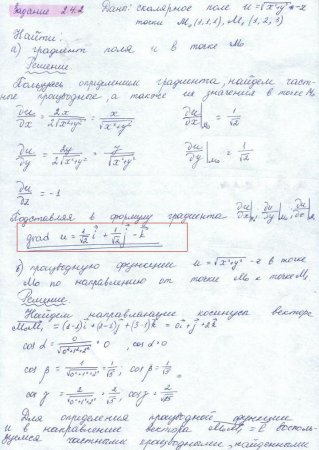 Задание 24.2 Дано: скалярное поле u = √x²+y² - z
точки M₀(1,1,1), M₁(1,2,3)
Найти:
а) градиент поля u в точке M₀
Решение
Пользуясь определением градиента, найдем част-
ные производные, а также их значения в точке M₀
∂u/∂x = 2x/2√x²+y² = x/√x²+y² ∂u/∂x|M₀ = 1/√2
∂u/∂y = 2y/2√x²+y² = y/√x²+y² ∂u/∂y|M₀ = 1/√2
∂u/∂z = -1
Подставляя в формулу градиента ∂u/∂x|M₀, ∂u/∂y|M₀, ∂u/∂z|M₀
grad u = 1/√2 i + 1/√2 j - k
б) производную функции u = √x²+y² - z в точке
M₀ по направлению от точки M₀ к точке M₁
Решение
Найдем направляющие косинусы вектора
M₀M₁ = (1-1)i + (2-1)j + (3-1)k = 0i + j + 2k
cos α = 0/√0²+1²+2² = 0, cos α = 0
cos β = 1/√0²+1²+2² = 1/√5, cos β = 1/√5
cos γ = 2/√0²+1²+2² = 2/√5, cos γ = 2/√5
Для определения производной функции
u в направление вектора M₀M₁ = ℓ восполь-
зуемся частными производными, найденными